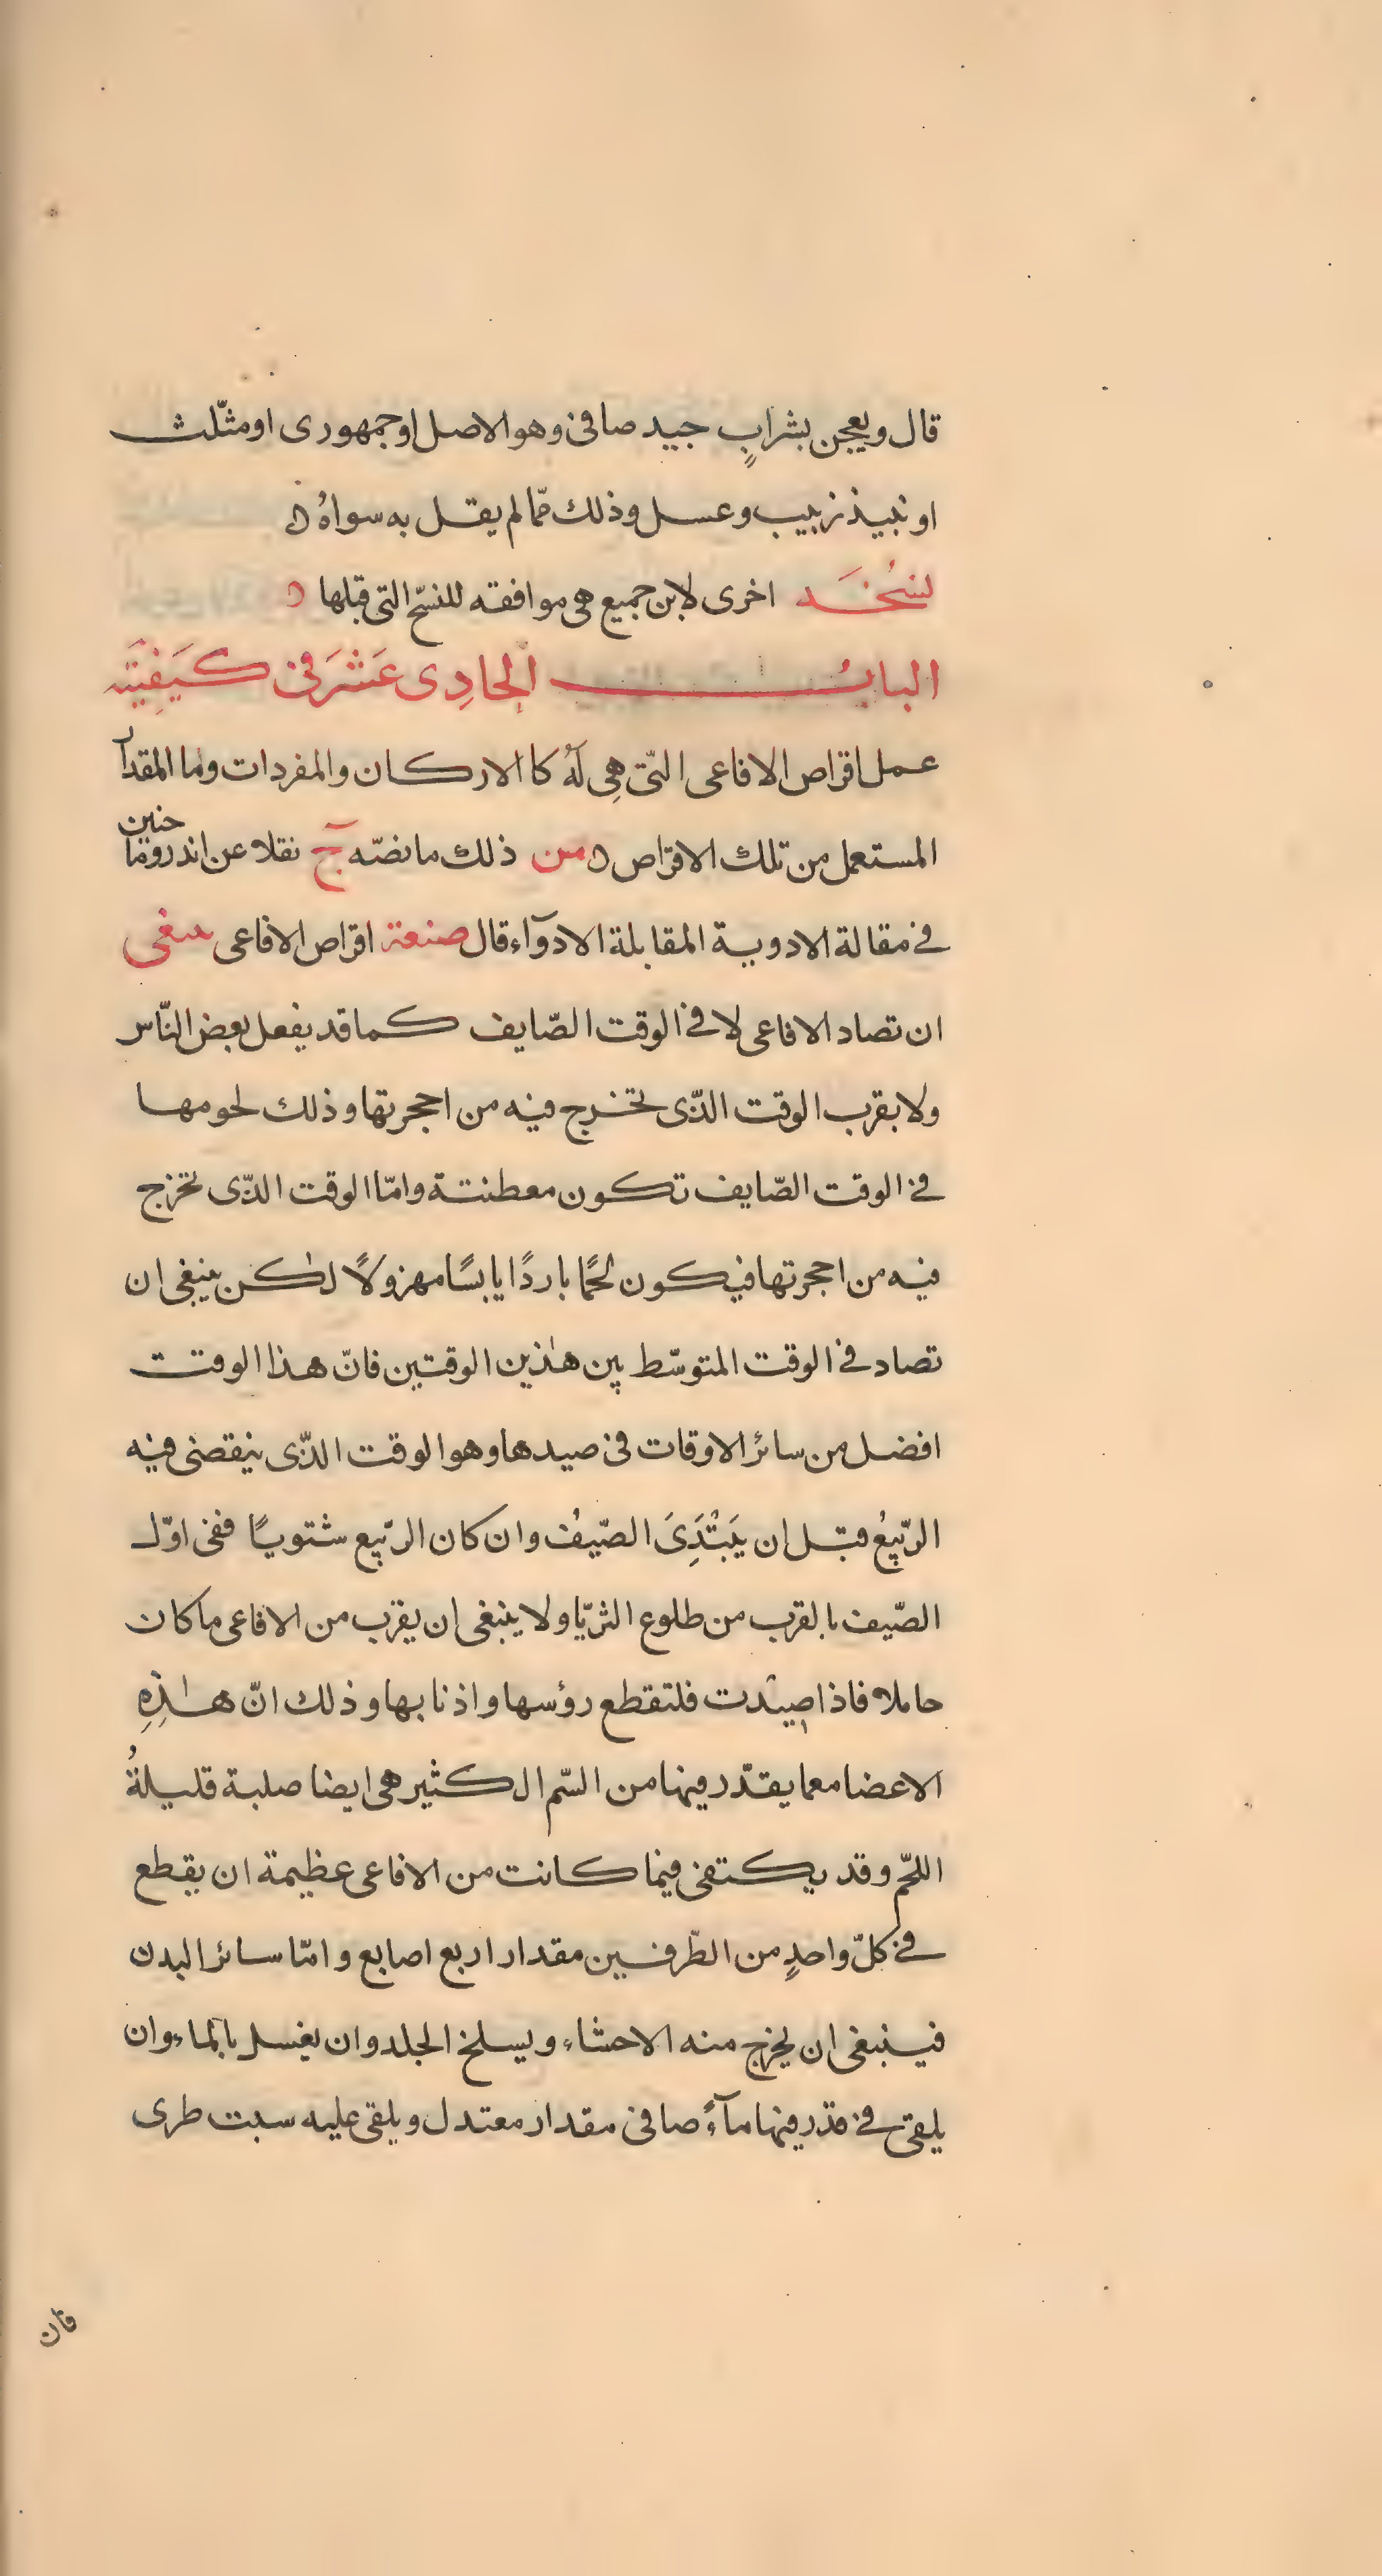 قال ويعجن بشرابٍ جيد صافى وهو الاصل او جمهورى او مثلّث
او نبيذ زبيب وعسل وذلك ممّا لم يقل به سواهُ
نسُخَه اخرى لابن جميع هى موافقه للنسّخ التى قبلها
البابُ الحادِى عَشَر فى كَيفيَّته
عمل اقراص الافاعى التّى هِى لهُ كا الاركان والمفردات واما المقدار
المستعمل من تلك الاقراص من ذلك ما نصّه ج نقلا عن اندروما حنين
فى مقالة الادوية المقابلة الادوآء قال صنعة اقراص الافاعى ينبغى
ان تصاد الافاعى لا فى الوقت الصّايف كما قد يفعل بعض النّاس
ولا بقرب الوقت الذّى تخرج فيه من احجرتها وذلك لحومها
فى الوقت الصّايف تكون معطنتة وامّا الوقت الذّى تخرج
فيه من احجرتها فيكون لحمًا باردًا يابسًا مهزولًا لكن ينبغى ان
تصاد فى الوقت المتوسّط بين هٰذين الوقتين فانّ هذا الوقت
افضل من سائر الاوقات فى صيدها وهو الوقت الذّى ينقضى فيه
الرّبيعُ قبل ان يَبْتَدِىَ الصّيفُ وان كان الرّبيع شتويًا ففى اوّل
الصّيف بالقرب من طلوع الثريّا ولا ينبغى ان يقرب من الافاعى ما كان
حاملا فاذا اصيدت فلتقطع رؤسها واذنابها وذلك انّ هٰذِهِ
الاعضا معما يقدّر فيها من السّم الكثير هى ايضا صلبة قليلةُ
اللحّم وقد يكتفى فيما كانت من الافاعى عظيمة ان يقطع
فى كلّ واحدٍ من الطّرفين مقدار اربع اصابع وامّا سائر البدن
فينبغى ان يخرج منه الاحشاء ويسلخ الجلد وان يغسل بالماء وان
يلقى فى قدر فيها مآءً صافى مقدار معتدل ويلقى عليه سبت طرى
فان